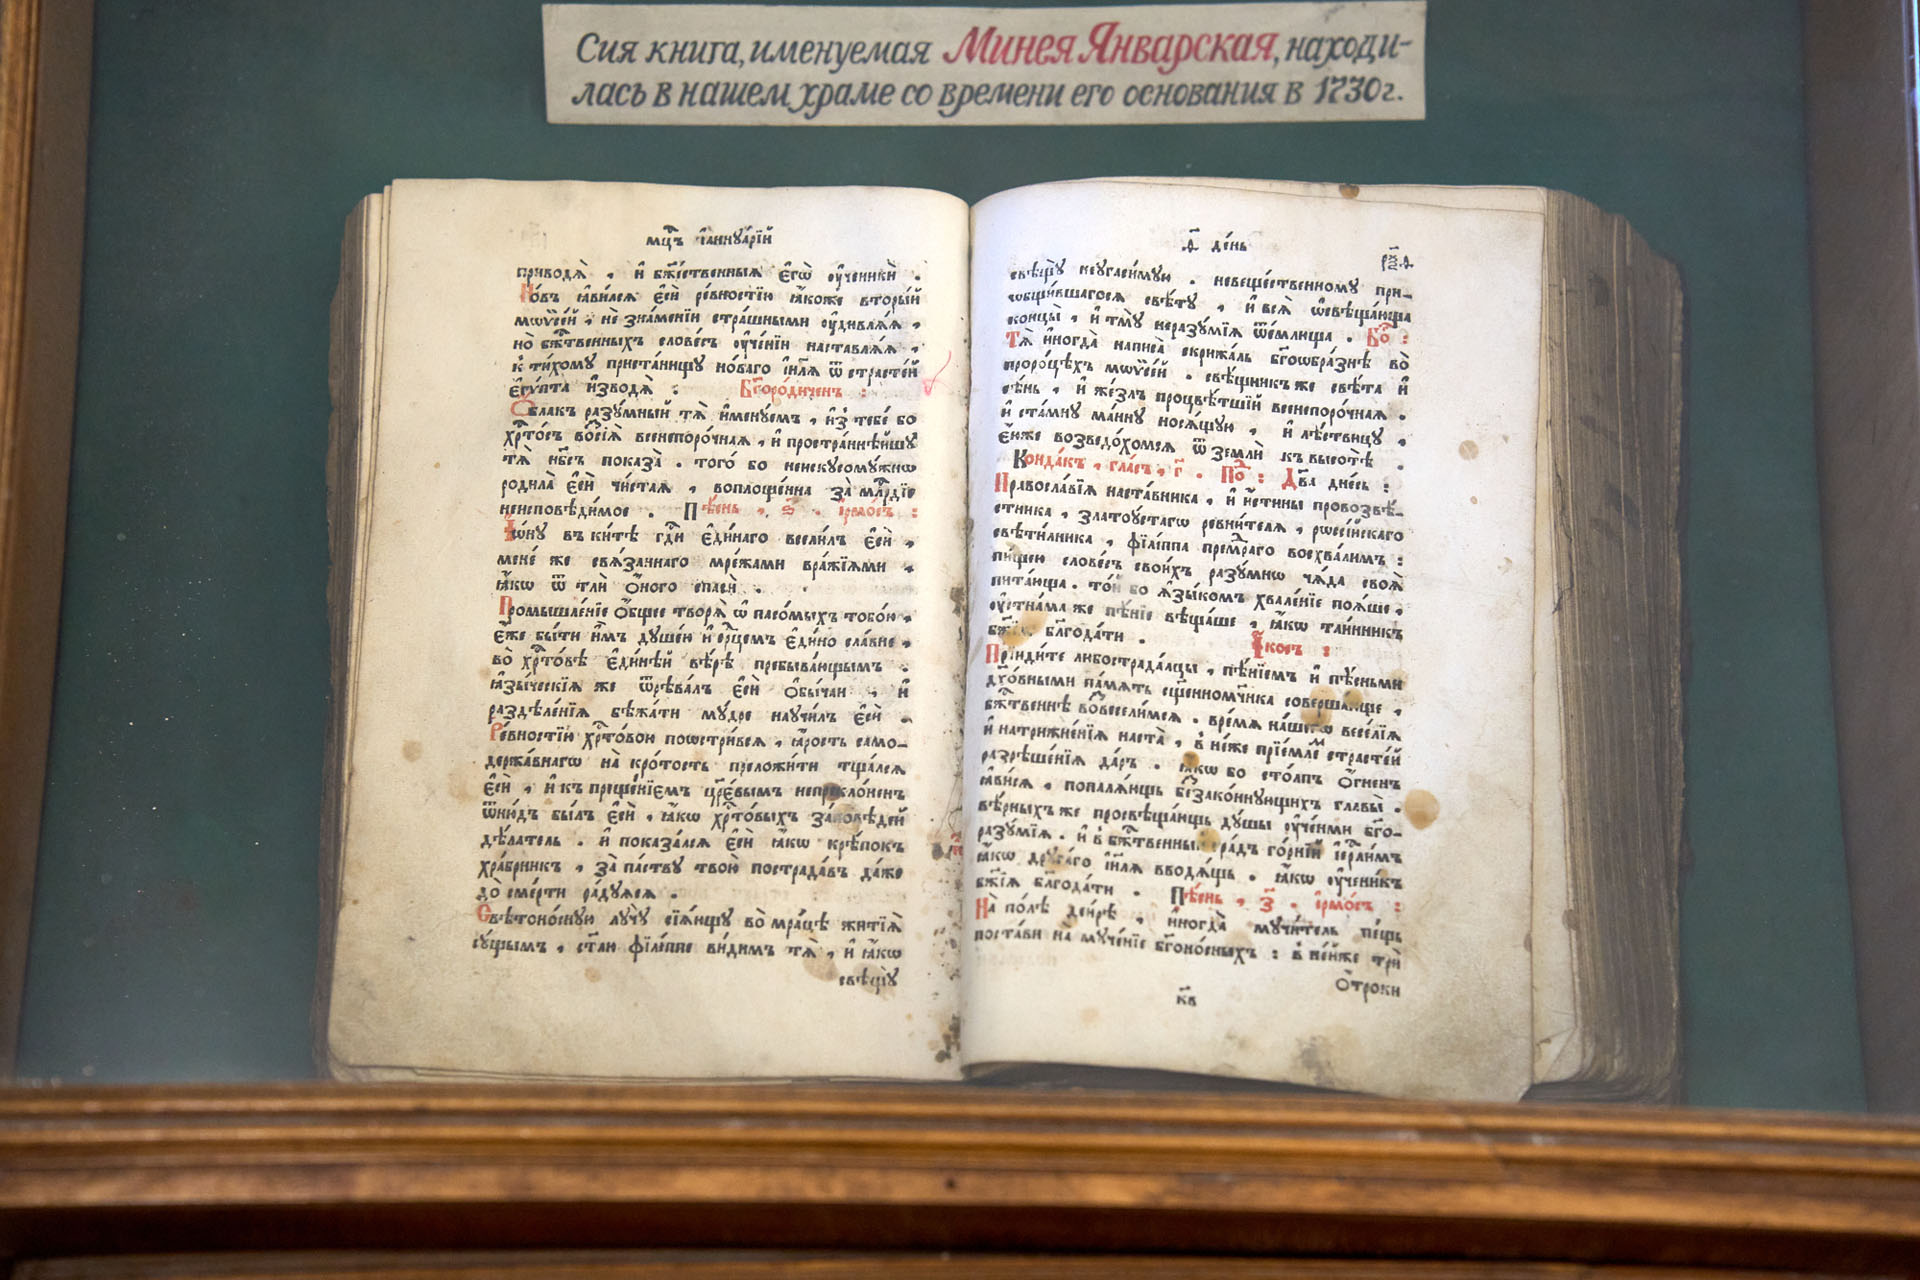 Сия книга, именуемая Минея Январская, находи-
лась в нашем храме со времени его основания в 1730г.
мцⷭ҇ъ і҆аннуа́рїй
приводѧ̀ , и҆ бжⷭ҇твенныѧ є҆гѡ̀ ѹ҆ченикѝ .
Но́въ ꙗ҆ви́лсѧ є҆сѝ ре́вностїю ꙗ҆́коже вторы́й
мѡѷсе́й , не зна́менїи стра́шными ѹ҆дивлѧ́ѧ ,
но бжⷭ҇твенныхъ слове́съ ѹ҆че́нїи наставлѧ́ѧ ,
к ти́хому приста́нищу но́ваго і҆и҃лѧ ѿ страсте́й
є҆гѵ́пта и҆зводѧ̀ : Бг҃оро́диченъ :
Ѻ҆́блакъ разу́мный тѧ̀ и҆мену́емъ , и҆з̾ тебе́ бо
хрⷭ҇то́съ возсїѧ̀ всенепоро́чнаѧ , и҆ простра́ннѣйшу
тѧ̀ нб҃съ показа̀ . того́ бо неискусому́жнѡ
родила̀ є҆сѝ чи́стаѧ , воплоще́нна за млⷭ҇рдїе
неисповѣ́димое . Пѣ́снь , ѕ҃ . і҆рмо́съ :
І҆ѡ́ну в ки́тѣ гдⷭ҇и є҆ди́наго всели́лъ є҆сѝ ,
мене́ же свѧ́заннаго мре́жами вра́жїими ,
ꙗ҆́кѡ ѿ тлѝ ѻ҆́ного спасѝ .
Промышле́нїе ѻ҆́бщее творѧ̀ ѡ҆ пасо́мыхъ тобо́ю ,
є҆́же бы́ти и҆̀мъ душе́ю и҆ се́рцемъ є҆ди́но сла́вне ,
во хрⷭ҇то́вѣ є҆ди́нѣй вѣ́рѣ пребыва́ющымъ .
ꙗ҆зы́ческїѧ же ѿрѣва́лъ є҆сѝ ѻ҆бы́чаи , и҆
раздѣле́нїѧ бѣжа́ти му́дре научи́лъ є҆сѝ .
Ре́вностїю хрⷭ҇то́вою поѡстри́всѧ , ꙗ҆́рость само-
держа́внагѡ на кро́тость преложи́ти тща́лсѧ
є҆сѝ , и҆ к преще́нїемъ црⷭ҇ке́вымъ непрекло́ненъ
ѿню́дъ бы́лъ є҆сѝ , ꙗ҆́кѡ хрⷭ҇то́выхъ за́повѣдей
дѣ́латель . и҆ показа́лсѧ є҆сѝ ꙗ҆́кѡ крѣ́покъ
хра́брникъ , за па́ству твою̀ пострада́въ да́же
до сме́рти ра́дуѧсѧ .
Свѣтоно́сную лучу̀ сїѧ́ющу во мра́цѣ житїѧ̀
су́щымъ , ст҃ы́и фїлі́ппе ви́димъ тѧ̀ , и҆ ꙗ҆́кѡ
свѣщу̀
ѳ҃ де́нь
рѯ҃ѳ
свѣщу̀ неугаси́мую . невеще́ственному прі-
ѡбщи́вшагосѧ свѣ́ту , и҆ всѧ̀ ѡ҆свѣща́юща
концы̀ , и҆ тму̀ неразу́мїѧ ѿе́млюща . Бг҃о :
Тѧ̀ и҆ногда̀ написа̀ скрижа́ль бг҃оѡбра́знѣ во
проро́цѣхъ мѡѷсе́й . свѣ́щникъ же свѣ́та и҆
сѣ́нь , и҆ же́злъ процвѣ́тшїй всенепоро́чнаѧ .
и҆ ста́мну ма́нну носѧ́щую , и҆ лѣ́ствицу ,
є҆́юже возведо́хомсѧ ѿ землѝ къ высотѣ̀ .
Конда́къ , гла́съ , г҃ . По : Два дне́сь :
Правосла́вїѧ наста́вника , и҆ и҆́стины провозвѣ́-
стника , златоу́стагѡ ревни́телѧ , рѡссі́йскаго
свѣти́лника , фїлі́ппа премⷣраго восхва́лимъ :
пи́щею слове́съ свои́хъ разу́мнѡ ча́да своѧ̀
пита́юща . то́й бо ꙗ҆зы́комъ хвале́нїе поѧ́ше ,
ѹ҆стна́ма же пѣ́нїе вѣща́ше , ꙗ҆́кѡ таи́нникъ
бж҃їѧ блгⷣода́ти . І҆́косъ :
Прїиди́те любострада́лцы , пѣ́нїемъ и҆ пѣ́сньми
дх҃о́вными па́мѧть сщ҃енномⷱ҇ника соверша́юще ,
бжⷭ҇твеннѣ возвесели́мсѧ . вре́мѧ на́шегѡ весе́лїѧ
и҆ натрижне́нїѧ наста̀ , в не́же прїе́млемъ страсте́й
разрѣше́нїѧ да́ръ . ꙗ҆́кѡ бо сто́лпъ ѻ҆́гненъ
ꙗ҆ви́сѧ , попалѧ́ющь беззако́ннующихъ главы̀ .
вѣ́рныхъ же просвѣща́ющь ду́шы ѹ҆че́ньми бг҃о-
разу́мїѧ . и҆ в бжⷭ҇твенный гра́дъ го́рнїй і҆ерⷭ҇ли́мъ
ꙗ҆́кѡ друга́го і҆и҃лѧ вводѧ́щь . ꙗ҆́кѡ ѹ҆чени́къ
бж҃їѧ блгⷣода́ти . Пѣ́снь , з҃ . і҆рмо́съ :
На по́лѣ деи́рѣ , и҆ногда̀ мучи́тель пе́щь
поста́ви на муче́нїе бг҃оно́сныхъ : в не́йже трѝ
ѻ҆́троки
к҃в